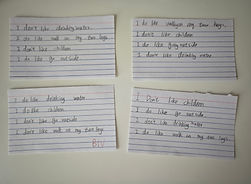 I don't like drinking water
I do like walk on my two legs
I don't like children
I do like go out side
I do like walking on my two legs.
I don't like children
I do like going outside
I don't like drinking water
I do like drinking water
I do like children
I don't like go outside
I don't like walk on my two legs
BIV
I Don't like children
I do like go outside.
I don't like drinking water
I do like walk on my two legs.